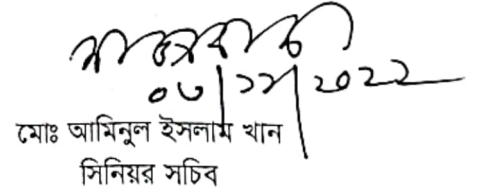 ০৬/১১/২০২২
মোঃ আমিনুল ইসলাম খান
সিনিয়র সচিব